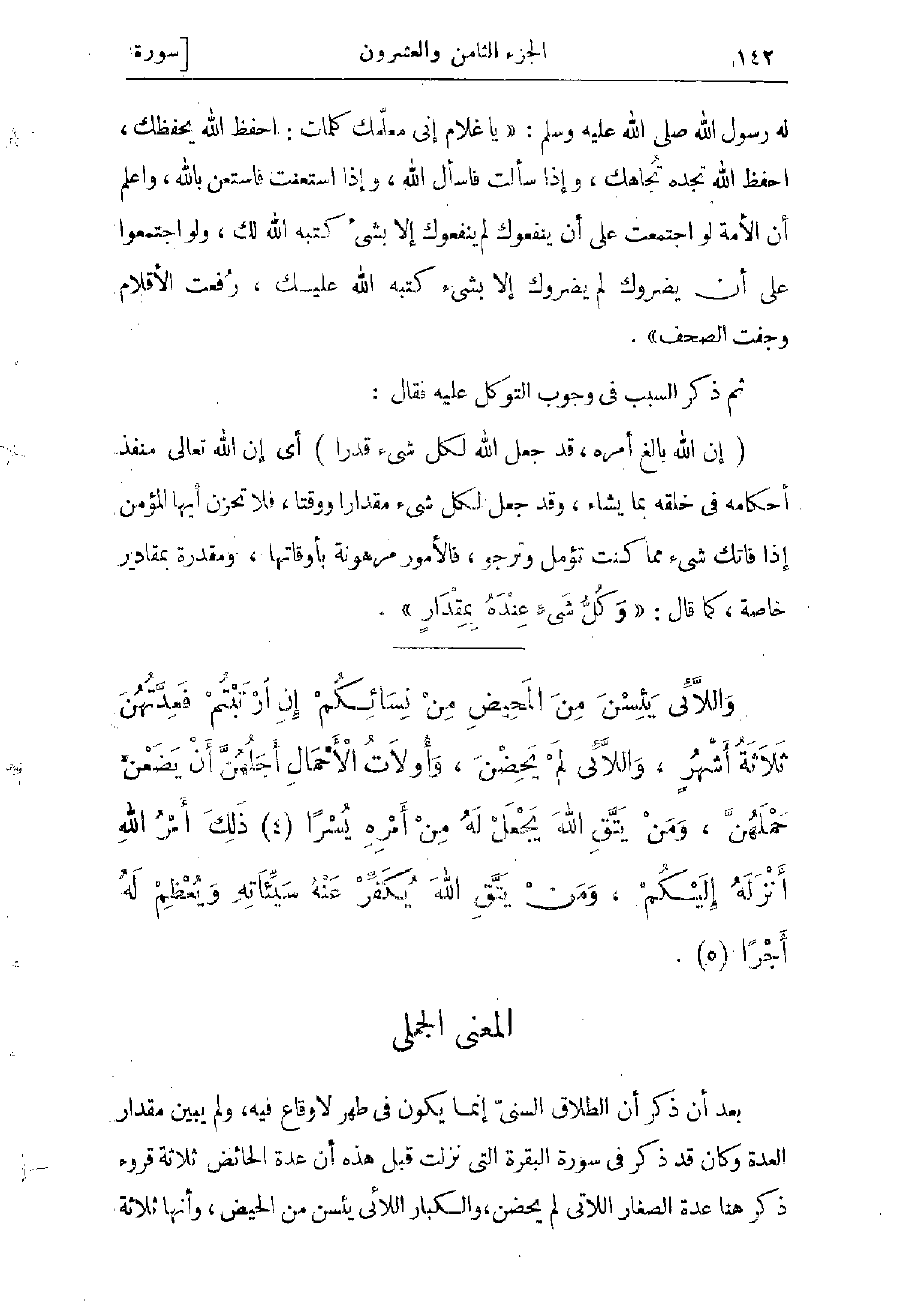 ١٤٢ الجزء الثامن والعشرون [سورة
له رسول الله صلى الله عليه وسلم : « يا غلام إنى معلّمك كلمات : احفظ الله يحفظك ،
احفظ الله تجده تُجاهك ، وإذا سألت فاسأل الله ، وإذا استعنت فاستعن بالله ، واعلم
أن الأمة لو اجتمعت على أن ينفعوك لم ينفعوك إلا بشىء كتبه الله لك ، ولو اجتمعوا
على أن يضروك لم يضروك إلا بشىء كتبه الله عليك ، رُفعت الأقلام
وجفت الصحف» .
ثم ذكر السبب فى وجوب التوكل عليه فقال :
( إن الله بالغ أمره ، قد جعل الله لكل شىء قدرا ) أى إن الله تعالى منفذ
أحكامه فى خلقه بما يشاء ، وقد جعل لكل شىء مقدارا ووقتا ، فلا تحزن أيها المؤمن
إذا فاتك شىء مما كنت تؤمل وترجو ، فالأمور مرهونة بأوقاتها ، ومقدرة بمقادير
خاصة ، كما قال : « وَكُلُّ شَىْءٍ عِنْدَهُ بِمِقْدَارٍ » .
وَاللاَّئِى يَئِسْنَ مِنَ الْمَحِيضِ مِنْ نِسَائِكُمْ إِنِ ارْتَبْتُمْ فَعِدَّتُهُنَّ
ثَلاَثَةُ أَشْهُرٍ ، وَاللاَّئِى لَمْ يَحِضْنَ ، وَأُولاَتُ الْأَحْمَالِ أَجَلُهُنَّ أَنْ يَضَعْنَ
حَمْلَهُنَّ ، وَمَنْ يَتَّقِ اللهَ يَجْعَلْ لَهُ مِنْ أَمْرِهِ يُسْرًا (٤) ذَلِكَ أَمْرُ اللهِ
أَنْزَلَهُ إِلَيْكُمْ ، وَمَنْ يَتَّقِ اللهَ يُكَفِّرْ عَنْهُ سَيِّئَاتِهِ وَيُعْظِمْ لَهُ
أَجْرًا (٥) .
المعنى الجملى
بعد أن ذكر أن الطلاق السنىّ إنما يكون فى طهر لاوقاع فيه، ولم يبين مقدار
العدة وكان قد ذكر فى سورة البقرة التى نزلت قبل هذه أن عدة الحائض ثلاثة قروء
ذكر هنا عدة الصغار اللاتى لم يحضن، والكبار اللائى يئسن من الحيض ، وأنها ثلاثة